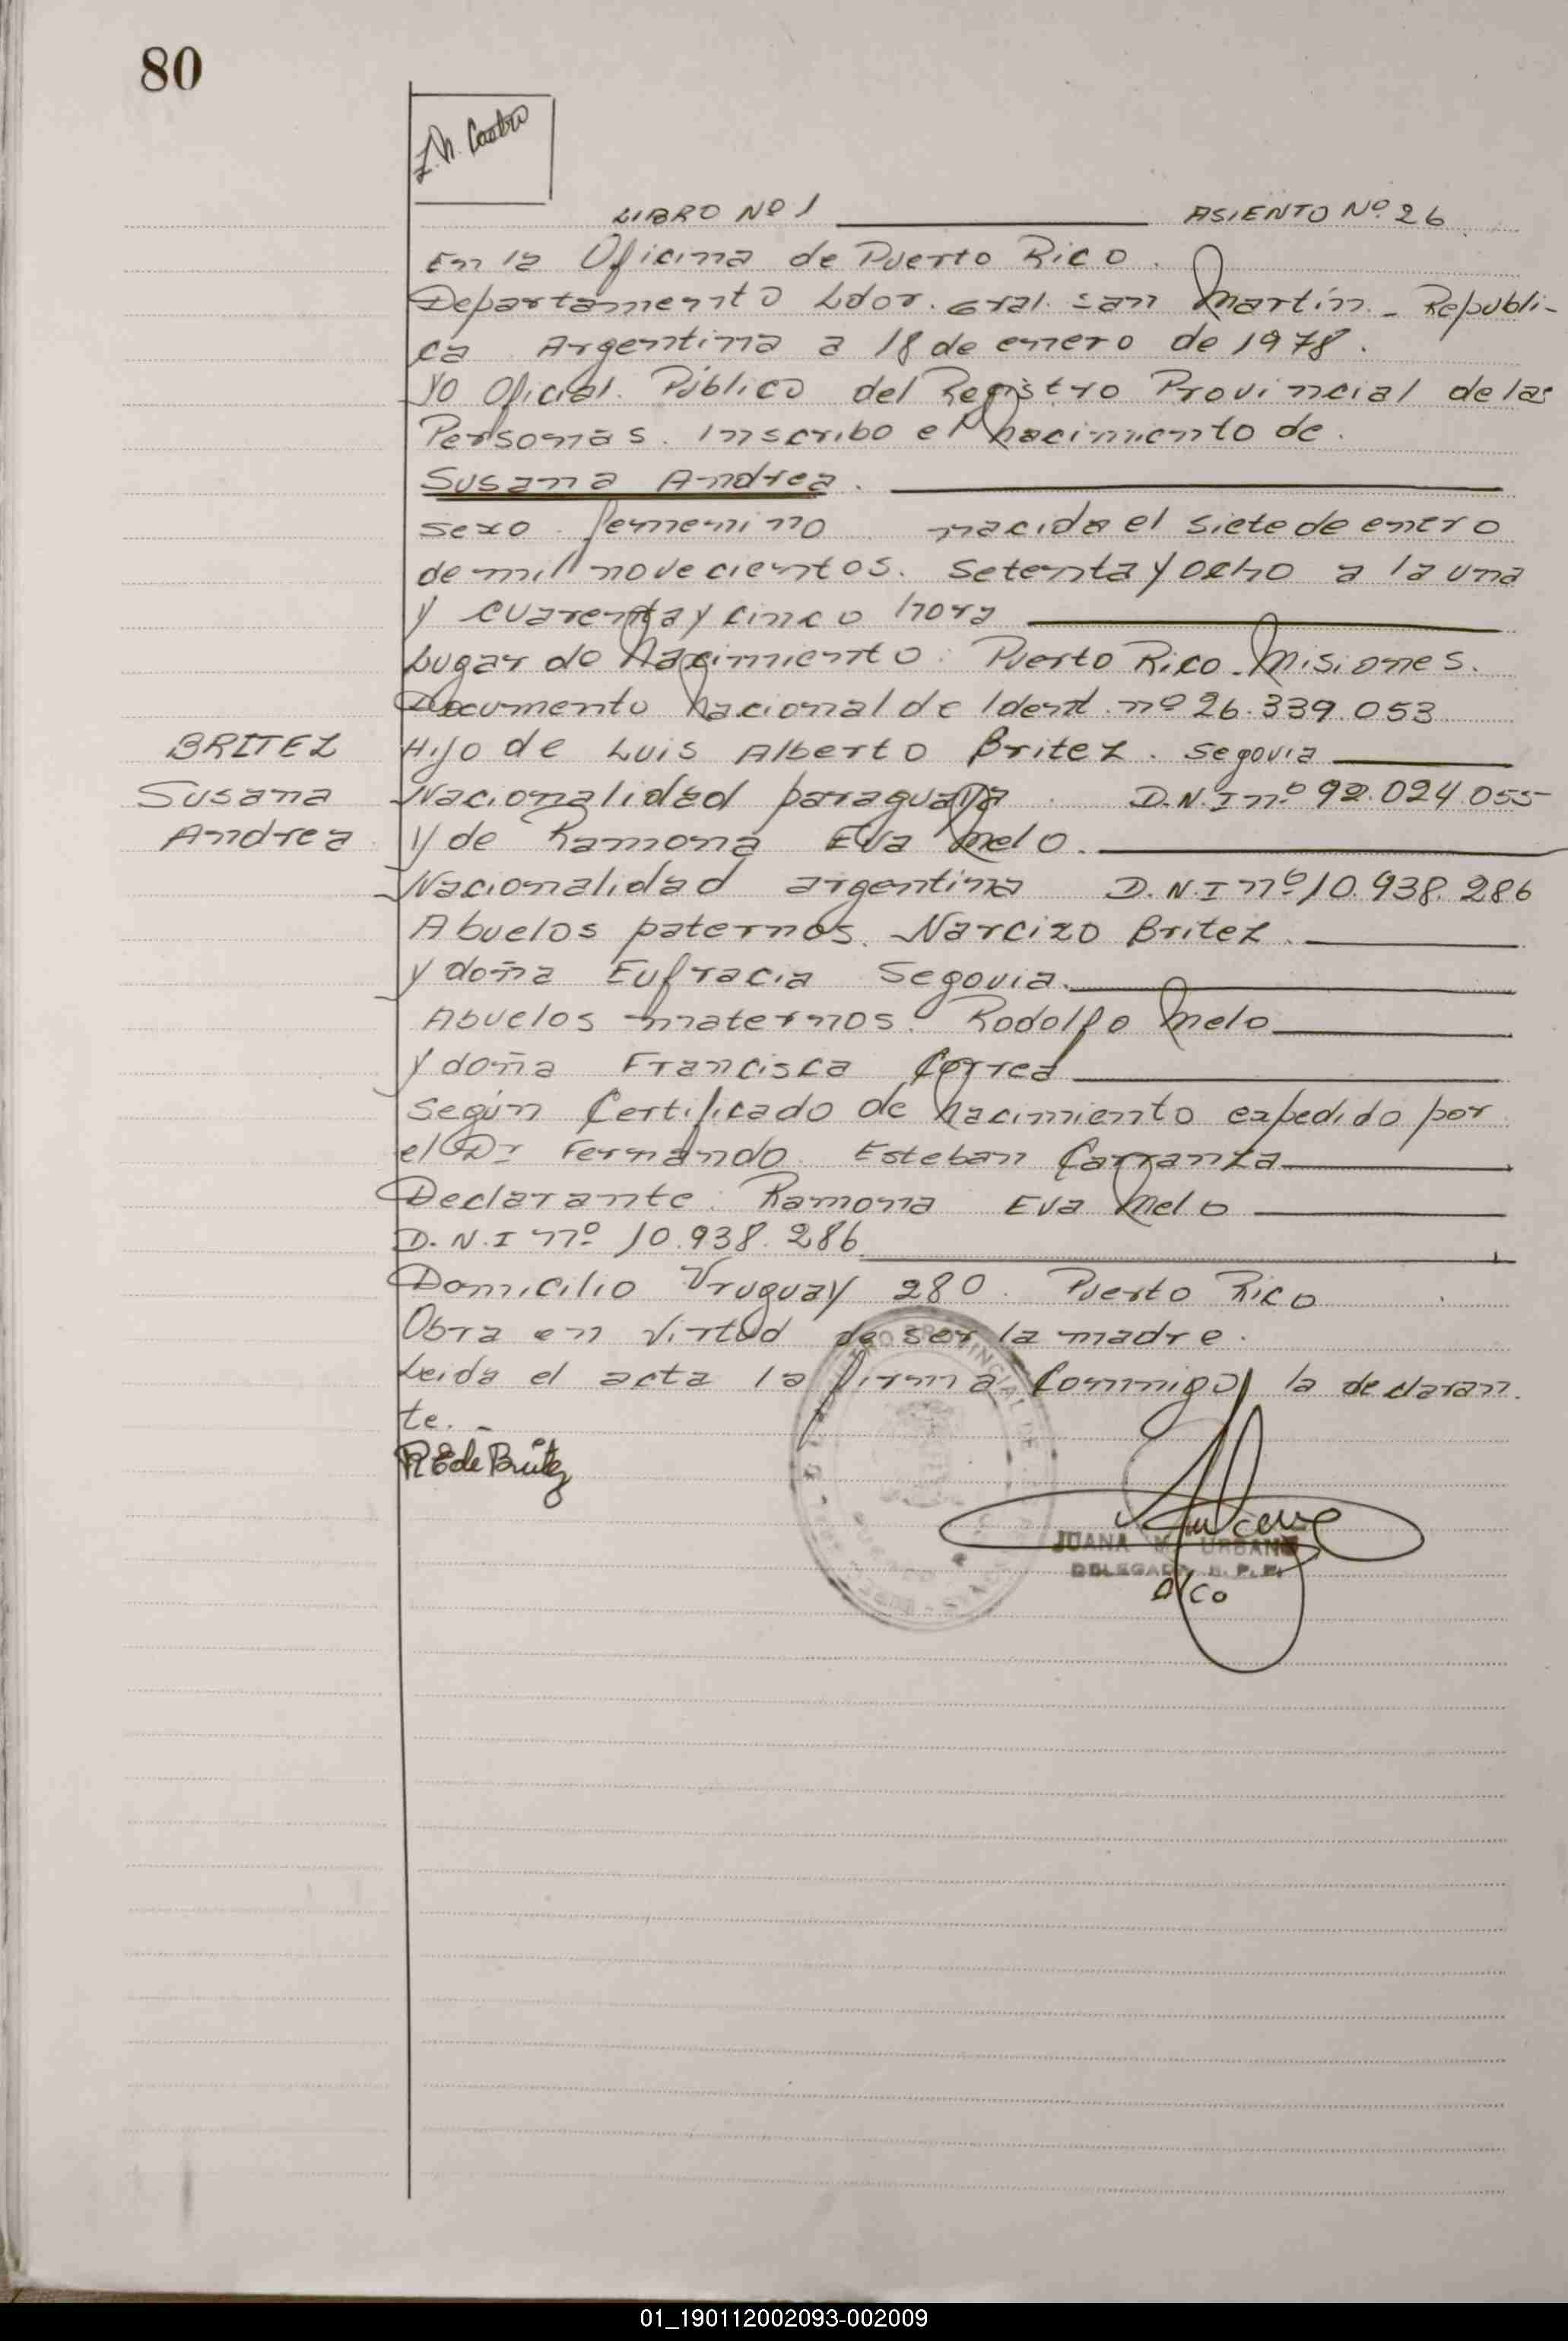 80
L.N. Castro
LIBRO Nº 1 ASIENTO Nº 26
En la Oficina de Puerto Rico.
Departamento Ldor. Gral. San Martín. Republi-
ca Argentina a 18 de enero de 1978.
Yo Oficial. Público del Registro Provincial de las
Personas. Inscribo el Nacimiento de.
Susana Andrea.
Sexo. femenino nacida el siete de enero
de mil novecientos. setenta y ocho a la una
y cuarenta y cinco hora
Lugar de Nacimiento: Puerto Rico. Misiones.
Documento Nacional de Ident. nº 26.339.053
BRITEZ
Susana
Andrea
Hijo de Luis Alberto Britez. Segovia
Nacionalidad paraguaya. D.N.I nº 92.024.055
y de Ramona Eva Melo.
Nacionalidad argentina D.N.I nº 10.938.286
Abuelos paternos. Narcizo Britez.
y doña Eufracia Segovia.
Abuelos maternos. Rodolfo Melo
y doña Francisca Correa
Según Certificado de Nacimiento expedido por
el Dr Fernando Esteban Carranza
Declarante: Ramona Eva Melo
D.N.I nº 10.938.286
Domicilio Uruguay 280. Puerto Rico
Obra en virtud de ser la madre.
Leida el acta la firma Conmigo la declaran.
te. -
R E de Britez
JUANA M. URBANO
DELEGADA R. P. P.
01_190112002093-002009